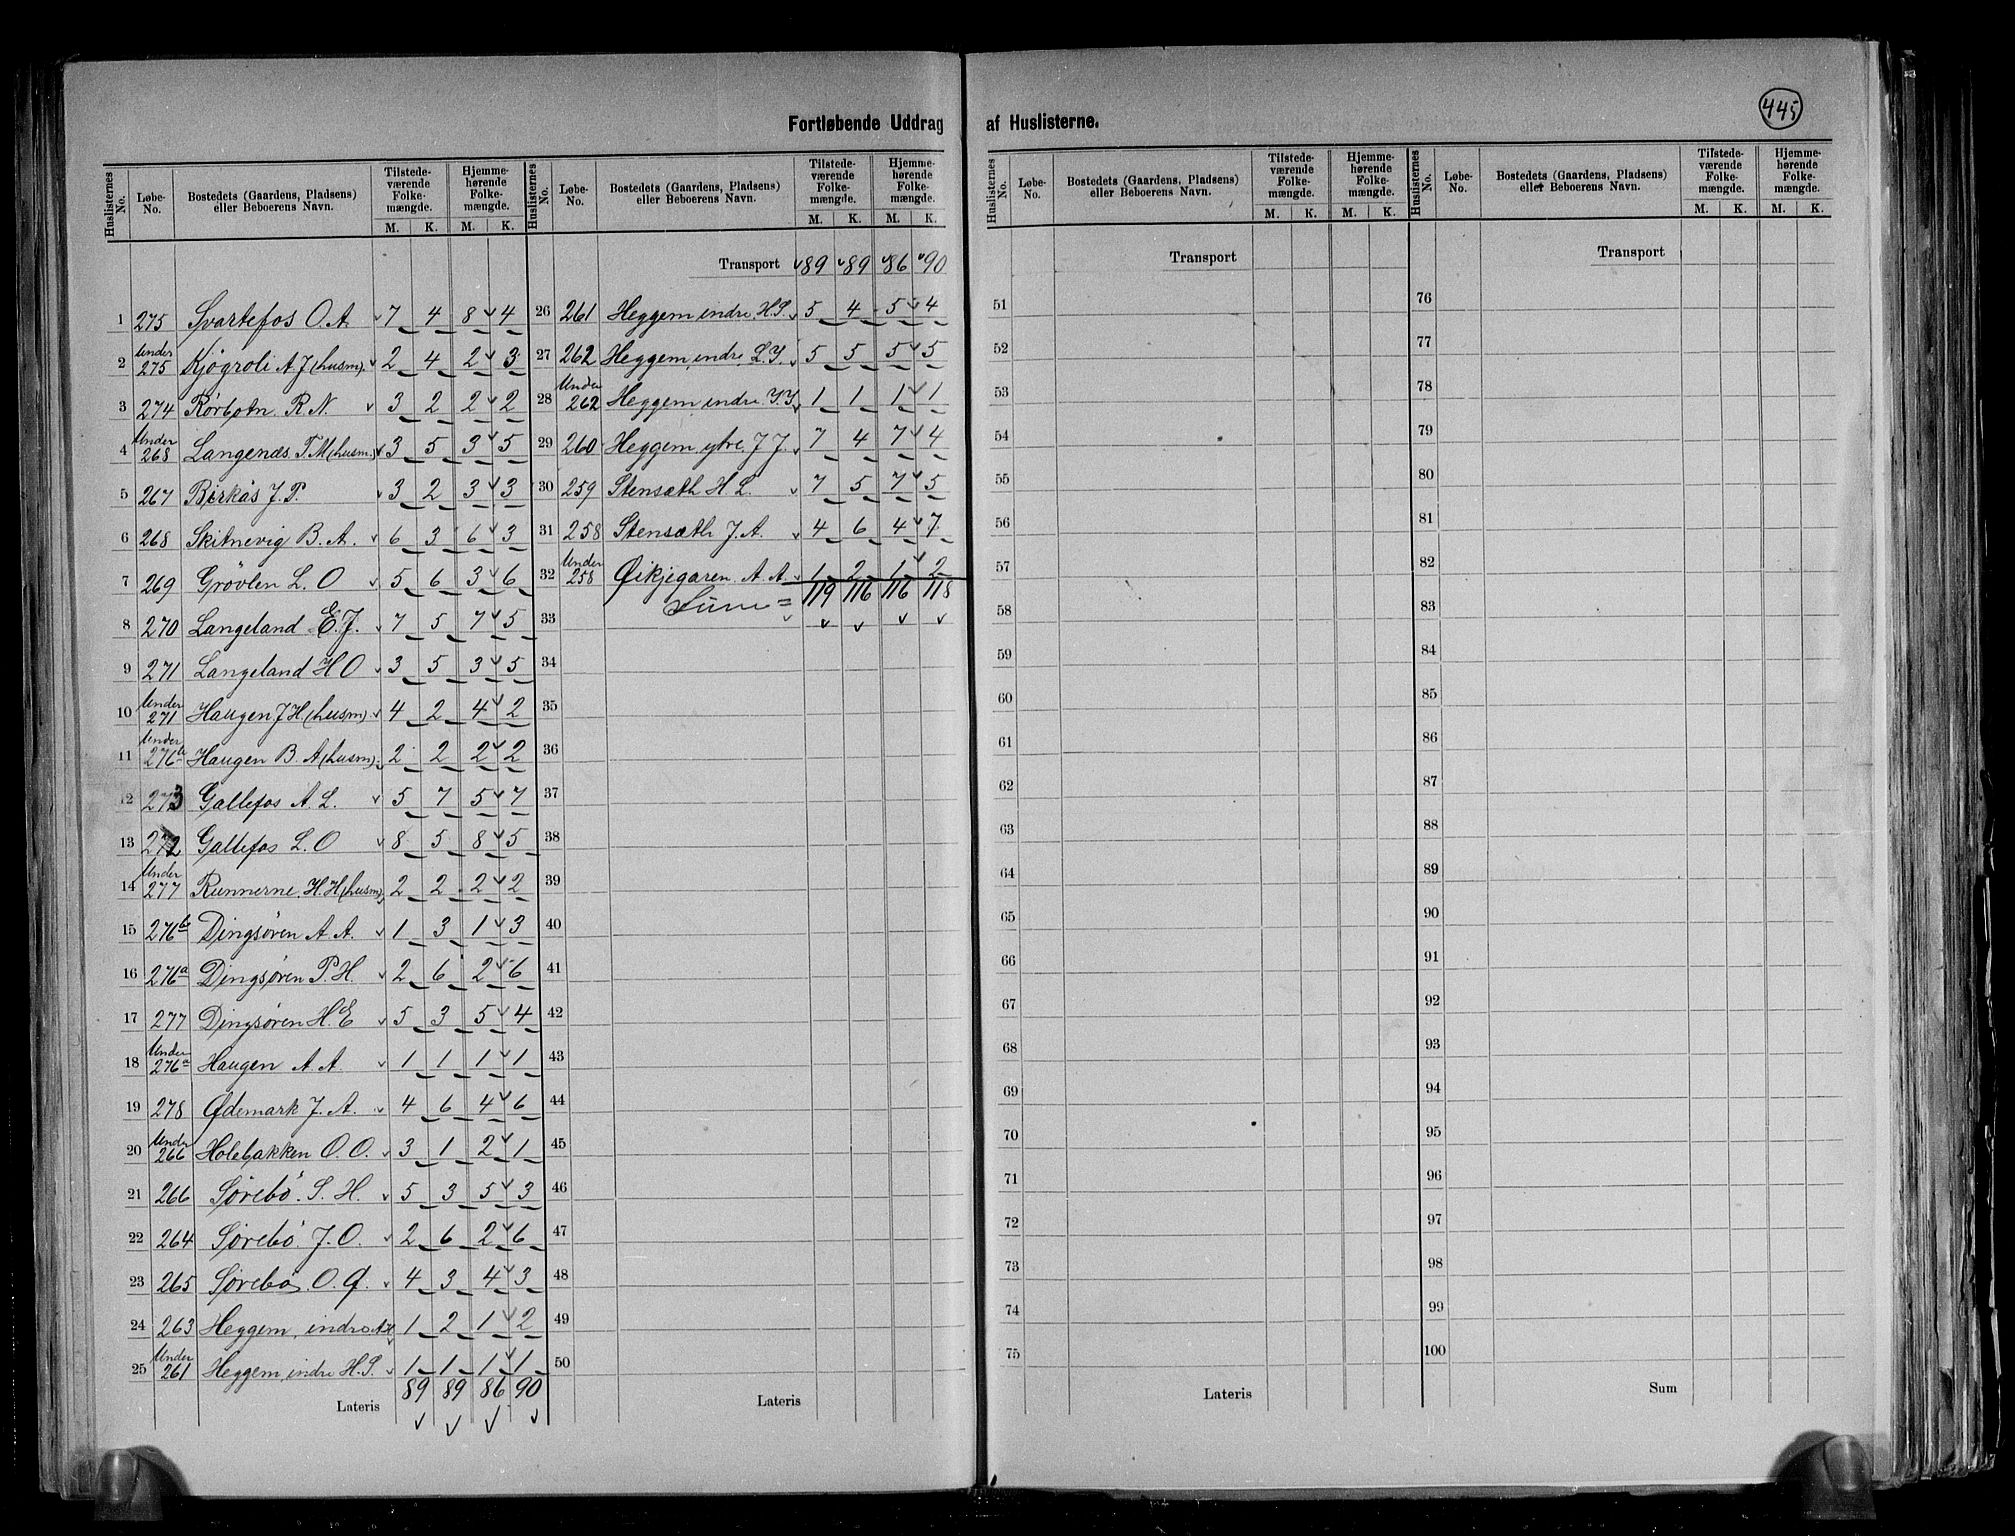 445
Fortløbende Uddrag af Huslisterne.
Huslisternes No. Løbe-No. Bostedets (Gaardens, Pladsens) eller Beboerens Navn. Tilstedeværende Folkemængde. M. K. Hjemmehørende Folkemængde. M. K.
1 275 Svartefos O. A. 7 4 8 4
2 Under 275 Kjøgroli A. J (husm). 2 4 2 3
3 274 Rørbotn R. N. 3 2 2 2
4 Under 268 Langenæs T. M (husm.) 3 5 3 5
5 267 Birkås J. P. 3 2 3 3
6 268 Skitnevig B. A. 6 3 6 3
7 269 Grøvlen L. O 5 6 3 6
8 270 Langeland E. J. 7 5 7 5
9 271 Langeland H O 3 5 3 5
10 Under 271 Haugen J H (husm) 4 2 4 2
11 Under 276b Haugen B. A (husm). 2 2 2 2
12 273 Gallefos A. L. 5 7 5 7
13 272 Gallefos L. O 8 5 8 5
14 Under 277 Runnerne. H. H (husm) 2 2 2 2
15 276b Dingsøren A. A. 1 3 1 3
16 276a Dingsøren P. H. 2 6 2 6
17 277 Dingsøren H. E 5 3 5 4
18 Under 276a Haugen A. A. 1 1 1 1
19 278 Ødemark J. A. 4 6 4 6
20 Under 266 Holebakken O. O. 3 1 2 1
21 266 Sørebö. S. H. 5 3 5 3
22 264 Sørebö J. O. 2 6 2 6
23 265 Sørebö O. O. 4 3 4 3
24 263 Heggem, indre 1 2 1 2
25 Under 261 Heggem, indre H. S. 1 1 1 1
89 89 86 90
Lateris
Huslisternes No. Løbe-No. Bostedets (Gaardens, Pladsens) eller Beboerens Navn. Tilstedeværende Folkemængde. M. K. Hjemmehørende Folkemængde. M. K.
Transport 89 89 86 90
26 261 Heggem, indre. H. S. 5 4 5 4
27 262 Heggem, indre, L. I. 5 5 5 5
28 Under 262 Heggem indre. I. I. 1 1 1 1
29 260 Heggem, ytre, J J. 7 4 7 4
30 259 Stensæth H L. 7 5 7 5
31 258 Stensæth J. A. 4 6 4 7
32 Under 258 Øikjegaren. A. A. 1 2 1 2
33 Sum = 119 116 116 118
34
35
36
37
38
39
40
41
42
43
44
45
46
47
48
49
50
Lateris
Huslisternes No. Løbe-No. Bostedets (Gaardens, Pladsens) eller Beboerens Navn. Tilstedeværende Folkemængde. M. K. Hjemmehørende Folkemængde. M. K.
Transport
51
52
53
54
55
56
57
58
59
60
61
62
63
64
65
66
67
68
69
70
71
72
73
74
75
Lateris
Huslisternes No. Løbe-No. Bostedets (Gaardens, Pladsens) eller Beboerens Navn. Tilstedeværende Folkemængde. M. K. Hjemmehørende Folkemængde. M. K.
Transport
76
77
78
79
80
81
82
83
84
85
86
87
88
89
90
91
92
93
94
95
96
97
98
99
100
Sum